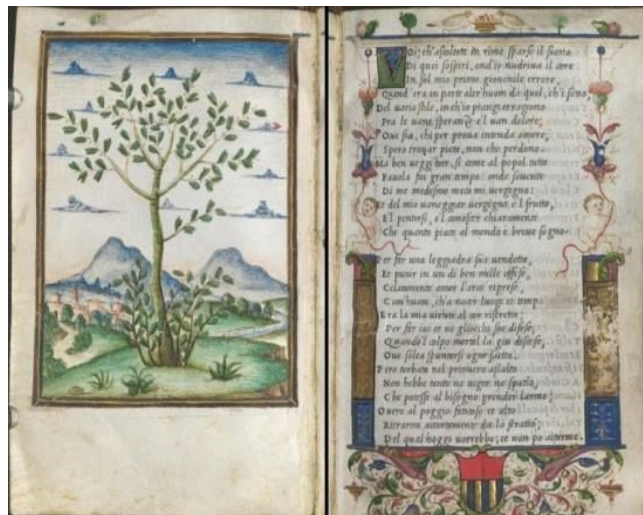 Voi, ch'ascoltate in rime sparse il suono
Di quei sospiri, ond'io nudriua il core
In sul mio primo giouenile errore,
Quand'era in parte altr'huom da quel, ch'i sono;
Del uario stile, in ch'io piango et ragiono
Fra le uane speranze e'l uan dolore;
Oue sia, chi per proua intenda amore,
Spero trouar pieta, non che perdono.
Ma ben ueggi hor, si come al popol tutto
Fauola fui gran tempo: onde souente
Di me medesmo meco mi uergogno:
Et del mio uaneggiar uergogna e'l frutto,
E'l pentirsi, e'l conoscer chiaramente
Che quanto piace al mondo è breue sogno.
Per far una leggiadra sua uendetta,
Et punir in un di ben mille offese,
Celatamente amor l'arco riprese,
Com'huom, ch'a nocer luogo et tempo
Era la mia uirtute al cor ristretta;
Per far iui et ne gliocchi sue difese;
Quando'l colpo mortal la giu discese,
Oue solea spuntarsi ogni saetta.
Pero turbata nel primiero assalto
Non hebbe tanto ne uigor ne spatio,
Che potesse al bisogno prender l'arme;
Ouero al poggio faticoso et alto
Ritrarmi accortamente da lo stratio;
Del qual hoggi uorrebbe; et non po aitarme.